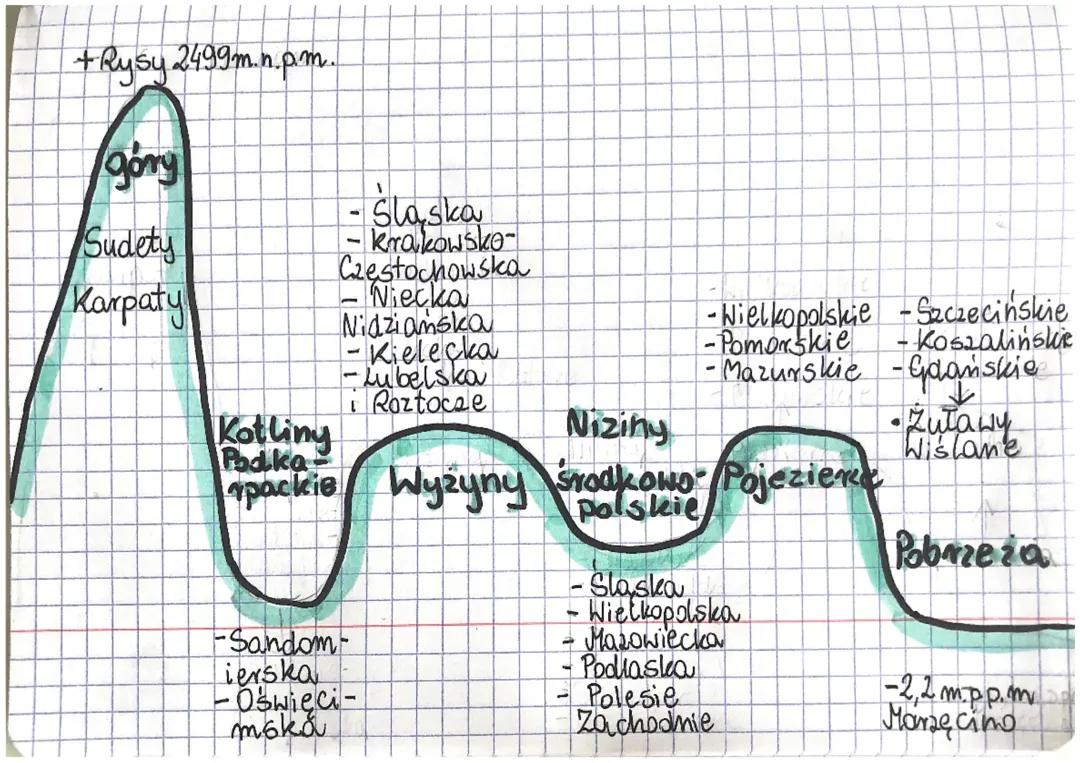 +Rysy 2499m.n.p.m.
góry
Sudety
Karpaty
Kotliny
Podka-
rpackie
-Sandom-
ierska
-Oświęci-
mska
- Śląska
- Krakowsko-
Częstochowska
- Niecka
Nidziańska
- Kielecka
- Lubelska
i Roztocze
Wyżyny
Niziny
środkowo-
polskie
- Śląska
- Wielkopolska
- Mazowiecka
- Podlaska
- Polesie
Zachodnie
-Wielkopolskie
-Pomorskie
-Mazurskie
Pojezierza
-Szczecińskie
-Koszalińskie
-Gdańskie
↓
•Żuławy
Wiślane
Pobrzeża
-2,2 m.p.p.m
Marzęcino